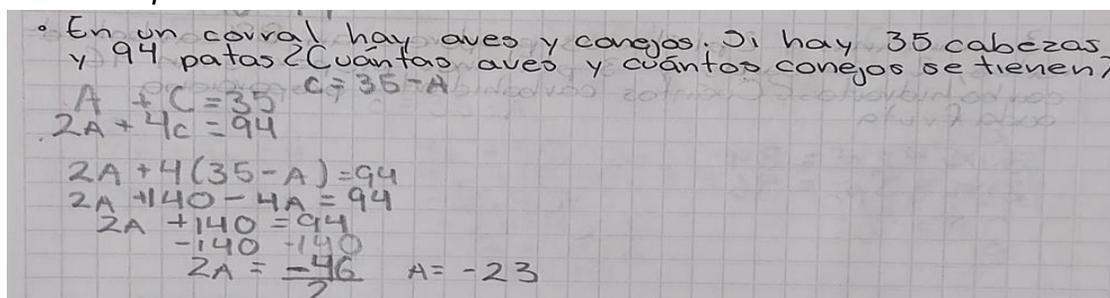 • En un corral hay aves y conejos. Si hay 35 cabezas
y 94 patas ¿Cuántas aves y cuántos conejos se tienen?
A + C = 35 C = 35 - A
2A + 4C = 94
2A + 4(35 - A) = 94
2A + 140 - 4A = 94
2A + 140 = 94
-140 -140
2A = -46 A = -23
2